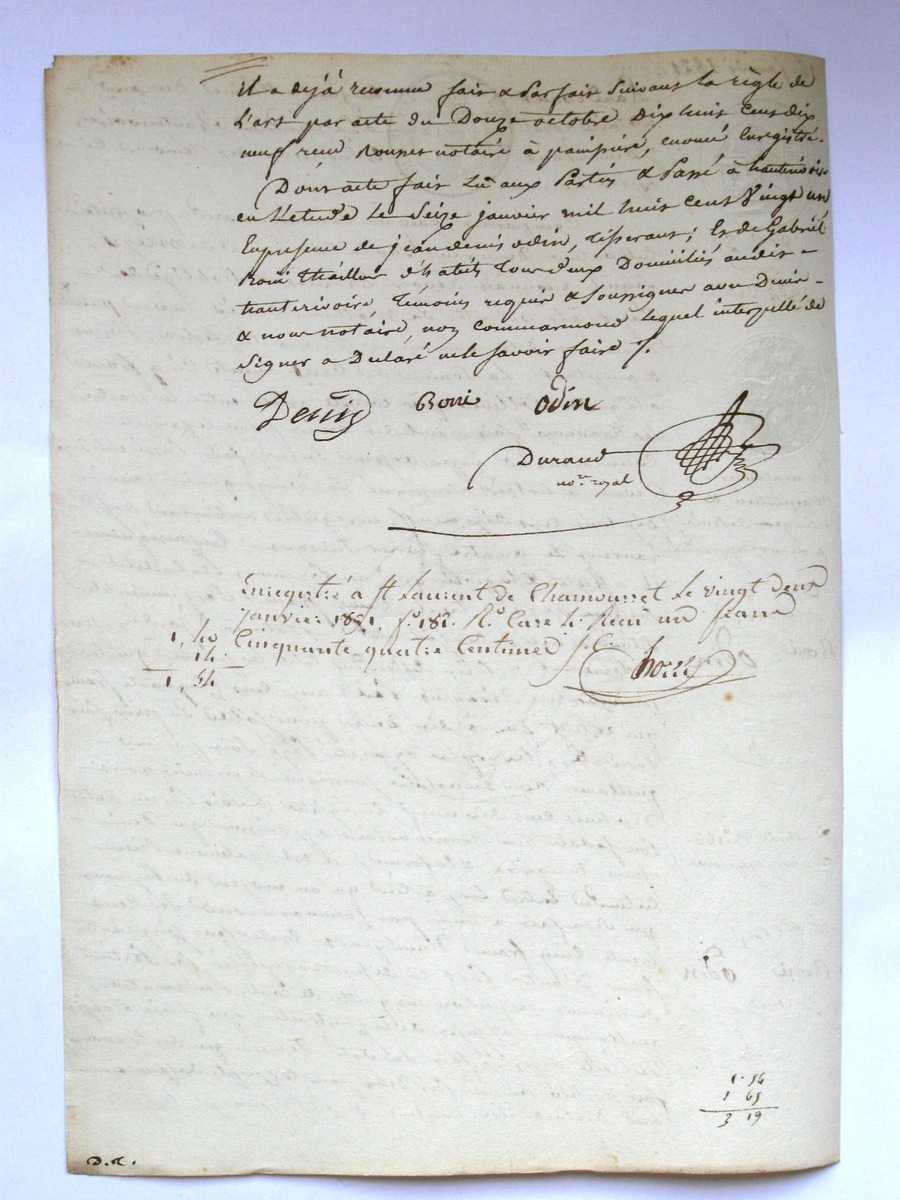 il a déjà reconnu fait & Parfait suivant la règle de
L'art par acte du Douze octobre Dix huit cent dix
neuf reçu notaire à enregistré.
Dont acte fait Lu aux Parties & Passé à hauterivoire
en L'etude le Seize janvier mil huit cent Vingt un
En presence de jean denis odin, tisserant; Et de Gabriel
Boni tous deux Domiciliés audit
hauterivoire témoins requis & Soussignés avec Denis
& nous notaire, non commarmond lequel interpellé de
Signer a Declaré ne le Savoir faire /.
Denis Boni odin
Durand
nore royal
Enregistré à St Laurent de Chamousset le vingt deux
janvier 1821, fo 181. Ro Case 4. Reçu un franc
Cinquante quatre Centimes
1, 40
14
1, 54
1. 54
1 65
3 19
D.R.